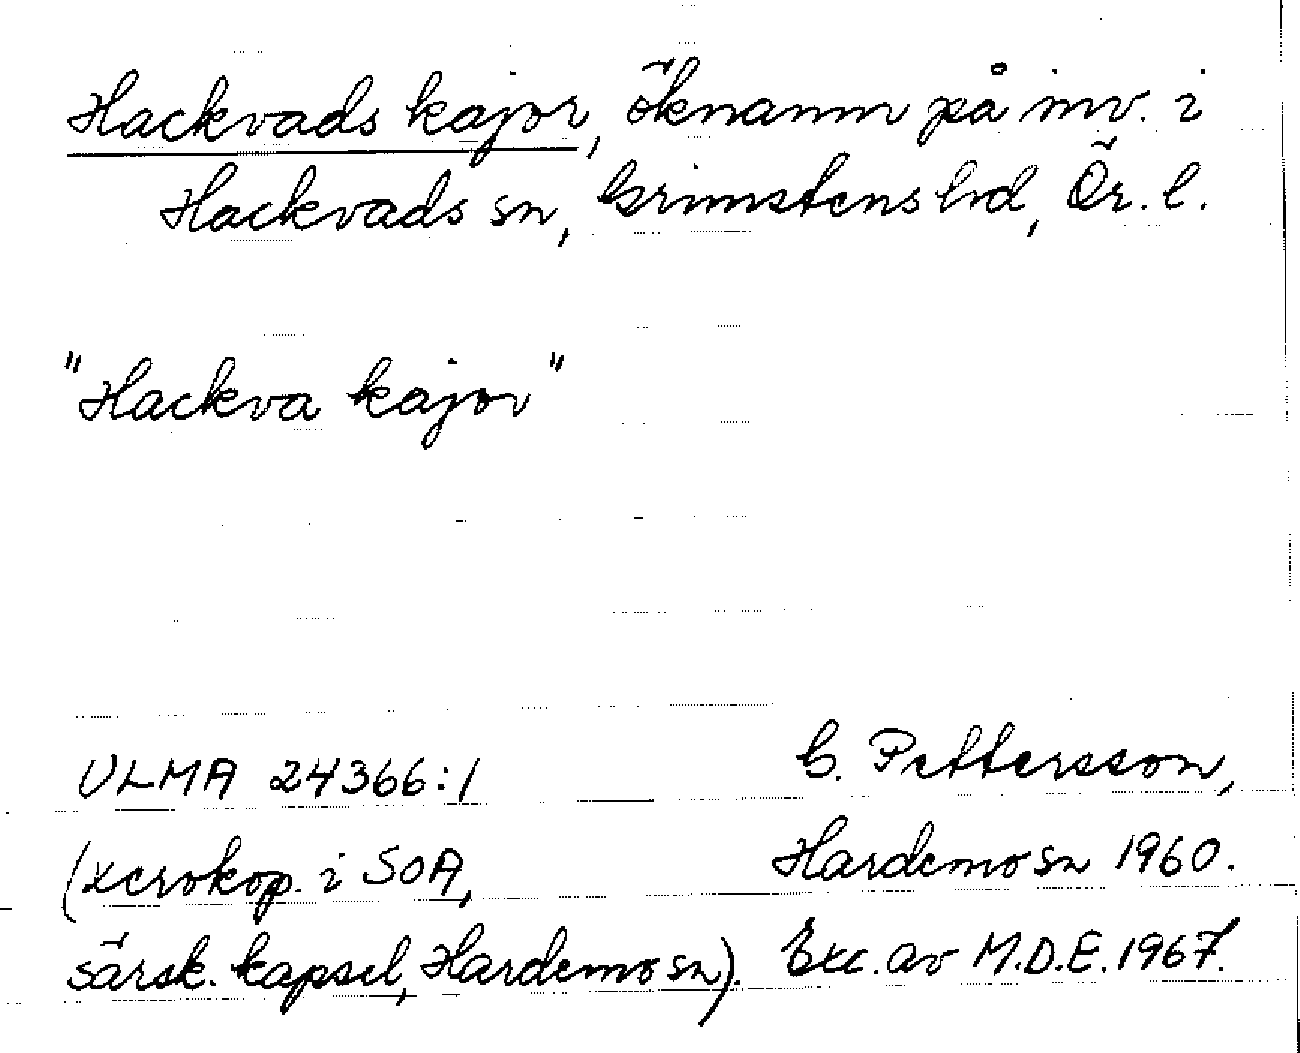 Hackvads kajor, öknamn på inv. i
Hackvads sn, Grimstens hd, Ör. l.
"Hackva kajor"
ULMA 24366:1
G. Pettersson,
(xerokop. i SOA,
Hardemo sn 1960.
särsk. kapsel, Hardemo sn).
Exc. av M.D.E. 1967.